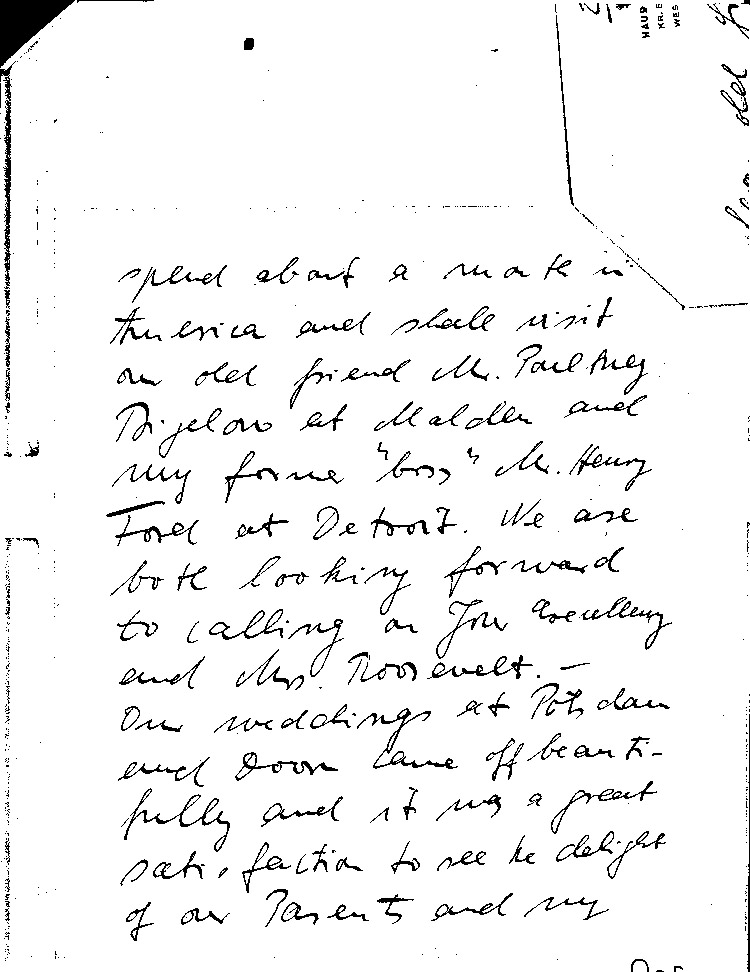 HAUS
KR. B
WES
old
spend about a month in
America and shall visit
our old friend Mr. Poultney
Bigelow at Malden and
my former "boss" Mr. Henry
Ford at Detroit. We are
both looking forward
to calling on Your Excellency
and Mrs. Roosevelt. —
Our weddings at Potsdam
and Doorn came off beauti-
fully and it was a great
satisfaction to see the delight
of our Parents and my